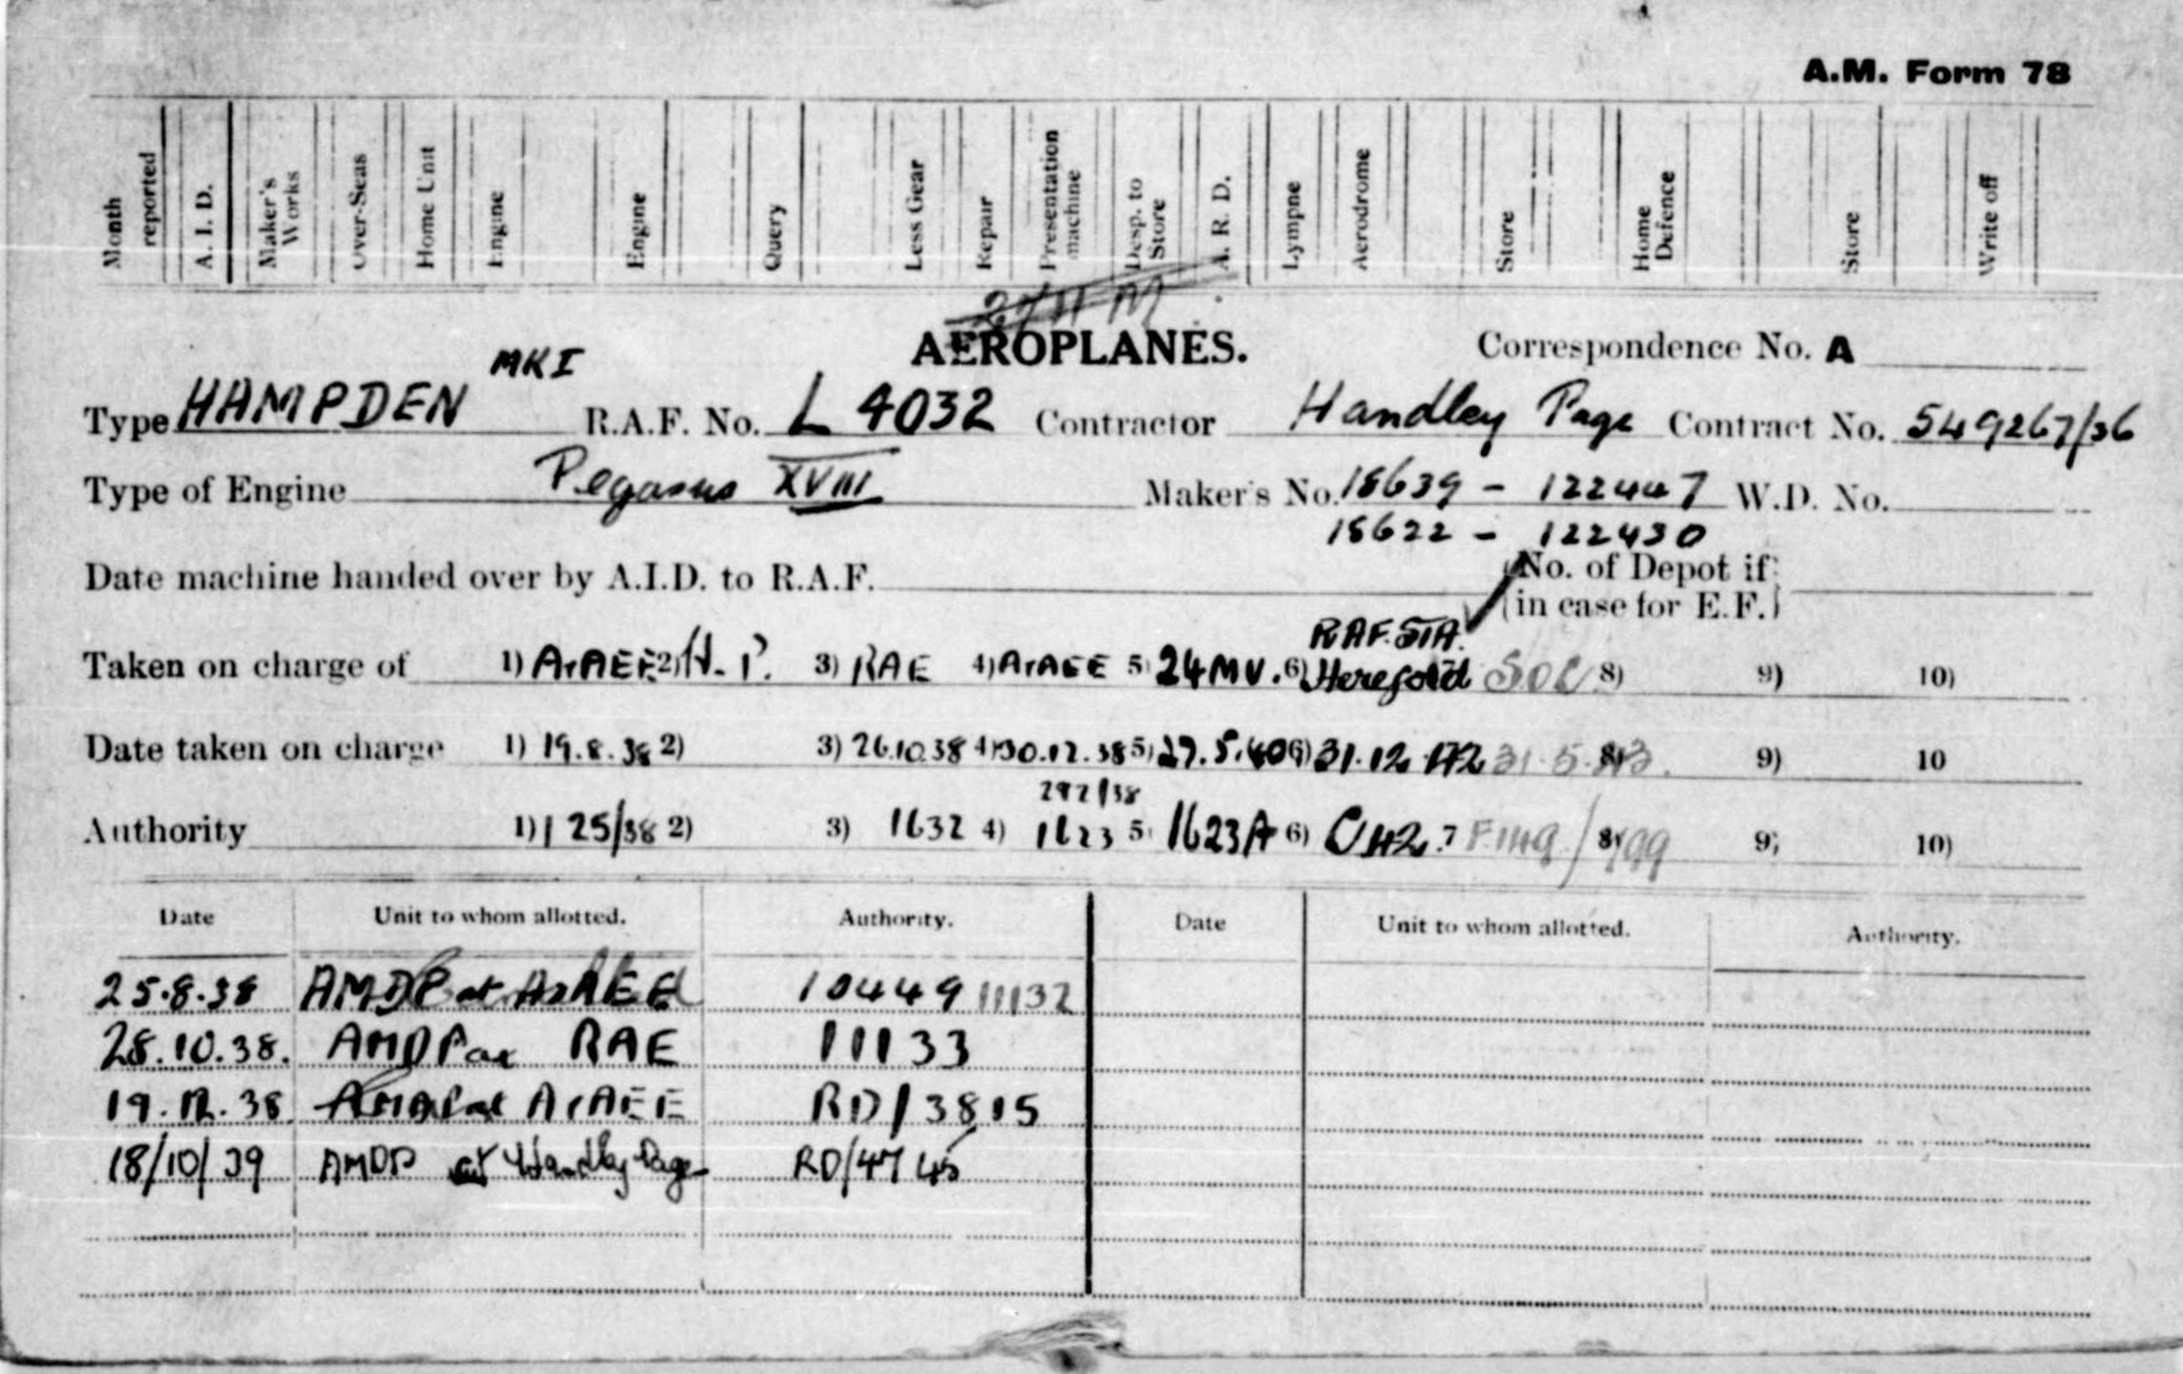 A.M. Form 78
Month reported A. I. D. Maker's Works Over-Seas Home Unit Engine Engine Query Less Gear Repair Presentation machine Desp. to Store A. R. D. Lympne Aerodrome Store Home Defence Store Write off
AEROPLANES. Correspondence No. A
MKI
Type HAMPDEN R.A.F. No. L 4032 Contractor Handley Page Contract No. 549267/36
Type of Engine Pegasus XVIII Maker's No. 18639 - 122447 W.D. No.
18622 - 122430
Date machine handed over by A.I.D. to R.A.F. No. of Depot if
in case for E.F.
RAF. STA.
Taken on charge of 1) A&AEE 2) H. P. 3) RAE 4) A&AEE 5) 24 MU. 6) Hereford SOC 8) 9) 10)
Date taken on charge 1) 19.8.38 2) 3) 26.10.38 4) 30.12.38 5) 27.5.40 6) 31.12.42 31.5.43. 8) 9) 10
292/38
Authority 1) 125/38 2) 3) 1632 4) 1623 5) 1623A 6) C42. 7 8) 9) 10)
Date Unit to whom allotted. Authority. Date Unit to whom allotted. Authority.
25.8.38 AMDP at A&AEE 10449 11132
28.10.38. AMDP at RAE 11133
19.12.38 AMDP at A&AEE RD/3815
18/10/39 AMDP at Handley Page RD/4745